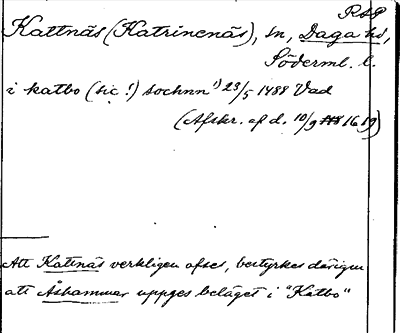 RAP
Kattnäs (Katrinenäs), sn, Daga hd,
Söderml. l.
i katbo (sic!) sochnn ¹) 23/5 1488 Vad
(Afskr. af d. 10/9 1619)
Att Kattnäs verkligen afses, bestyrkes därigm
att Åshammar uppges beläget i "Katbo"